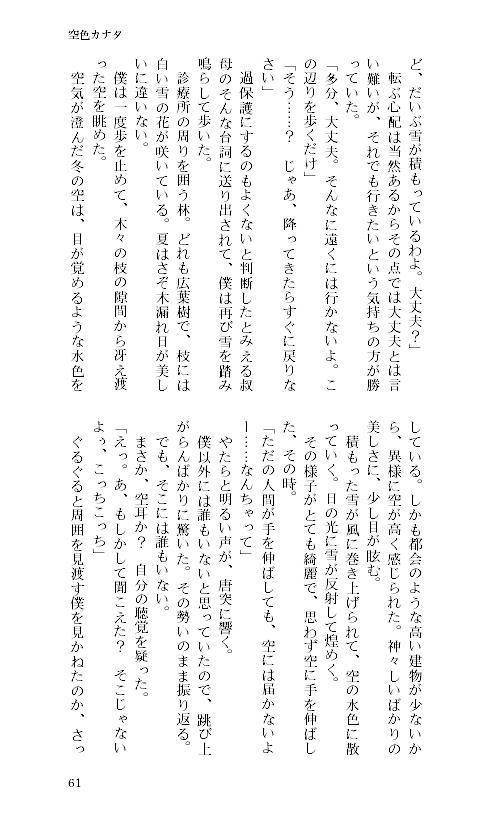 空色カナタ
ど、だいぶ雪が積もっているわよ。大丈夫？」
転ぶ心配は当然あるからその点では大丈夫とは言
い難いが、それでも行きたいという気持ちの方が勝
っていた。
「多分、大丈夫。そんなに遠くには行かないよ。こ
の辺りを歩くだけ」
「そう……？　じゃあ、降ってきたらすぐに戻りな
さい」
過保護にするのもよくないと判断したとみえる叔
母のそんな台詞に送り出されて、僕は再び雪を踏み
鳴らして歩いた。
診療所の周りを囲う林。どれも広葉樹で、枝には
白い雪の花が咲いている。夏はさぞ木漏れ日が美し
いに違いない。
僕は一度歩を止めて、木々の枝の隙間から冴え渡
った空を眺めた。
空気が澄んだ冬の空は、目が覚めるような水色を
している。しかも都会のような高い建物が少ないか
ら、異様に空が高く感じられた。神々しいばかりの
美しさに、少し目が眩む。
積もった雪が風に巻き上げられて、空の水色に散
っていく。日の光に雪が反射して煌めく。
その様子がとても綺麗で、思わず空に手を伸ばし
た、その時。
「ただの人間が手を伸ばしても、空には届かないよ
ー……なんちゃって」
やたらと明るい声が、唐突に響く。
僕以外には誰もいないと思っていたので、跳び上
がらんばかりに驚いた。その勢いのまま振り返る。
でも、そこには誰もいない。
まさか、空耳か？　自分の聴覚を疑った。
「えっ。あ、もしかして聞こえた？　そこじゃない
よぅ、こっちこっち」
ぐるぐると周囲を見渡す僕を見かねたのか、さっ
61